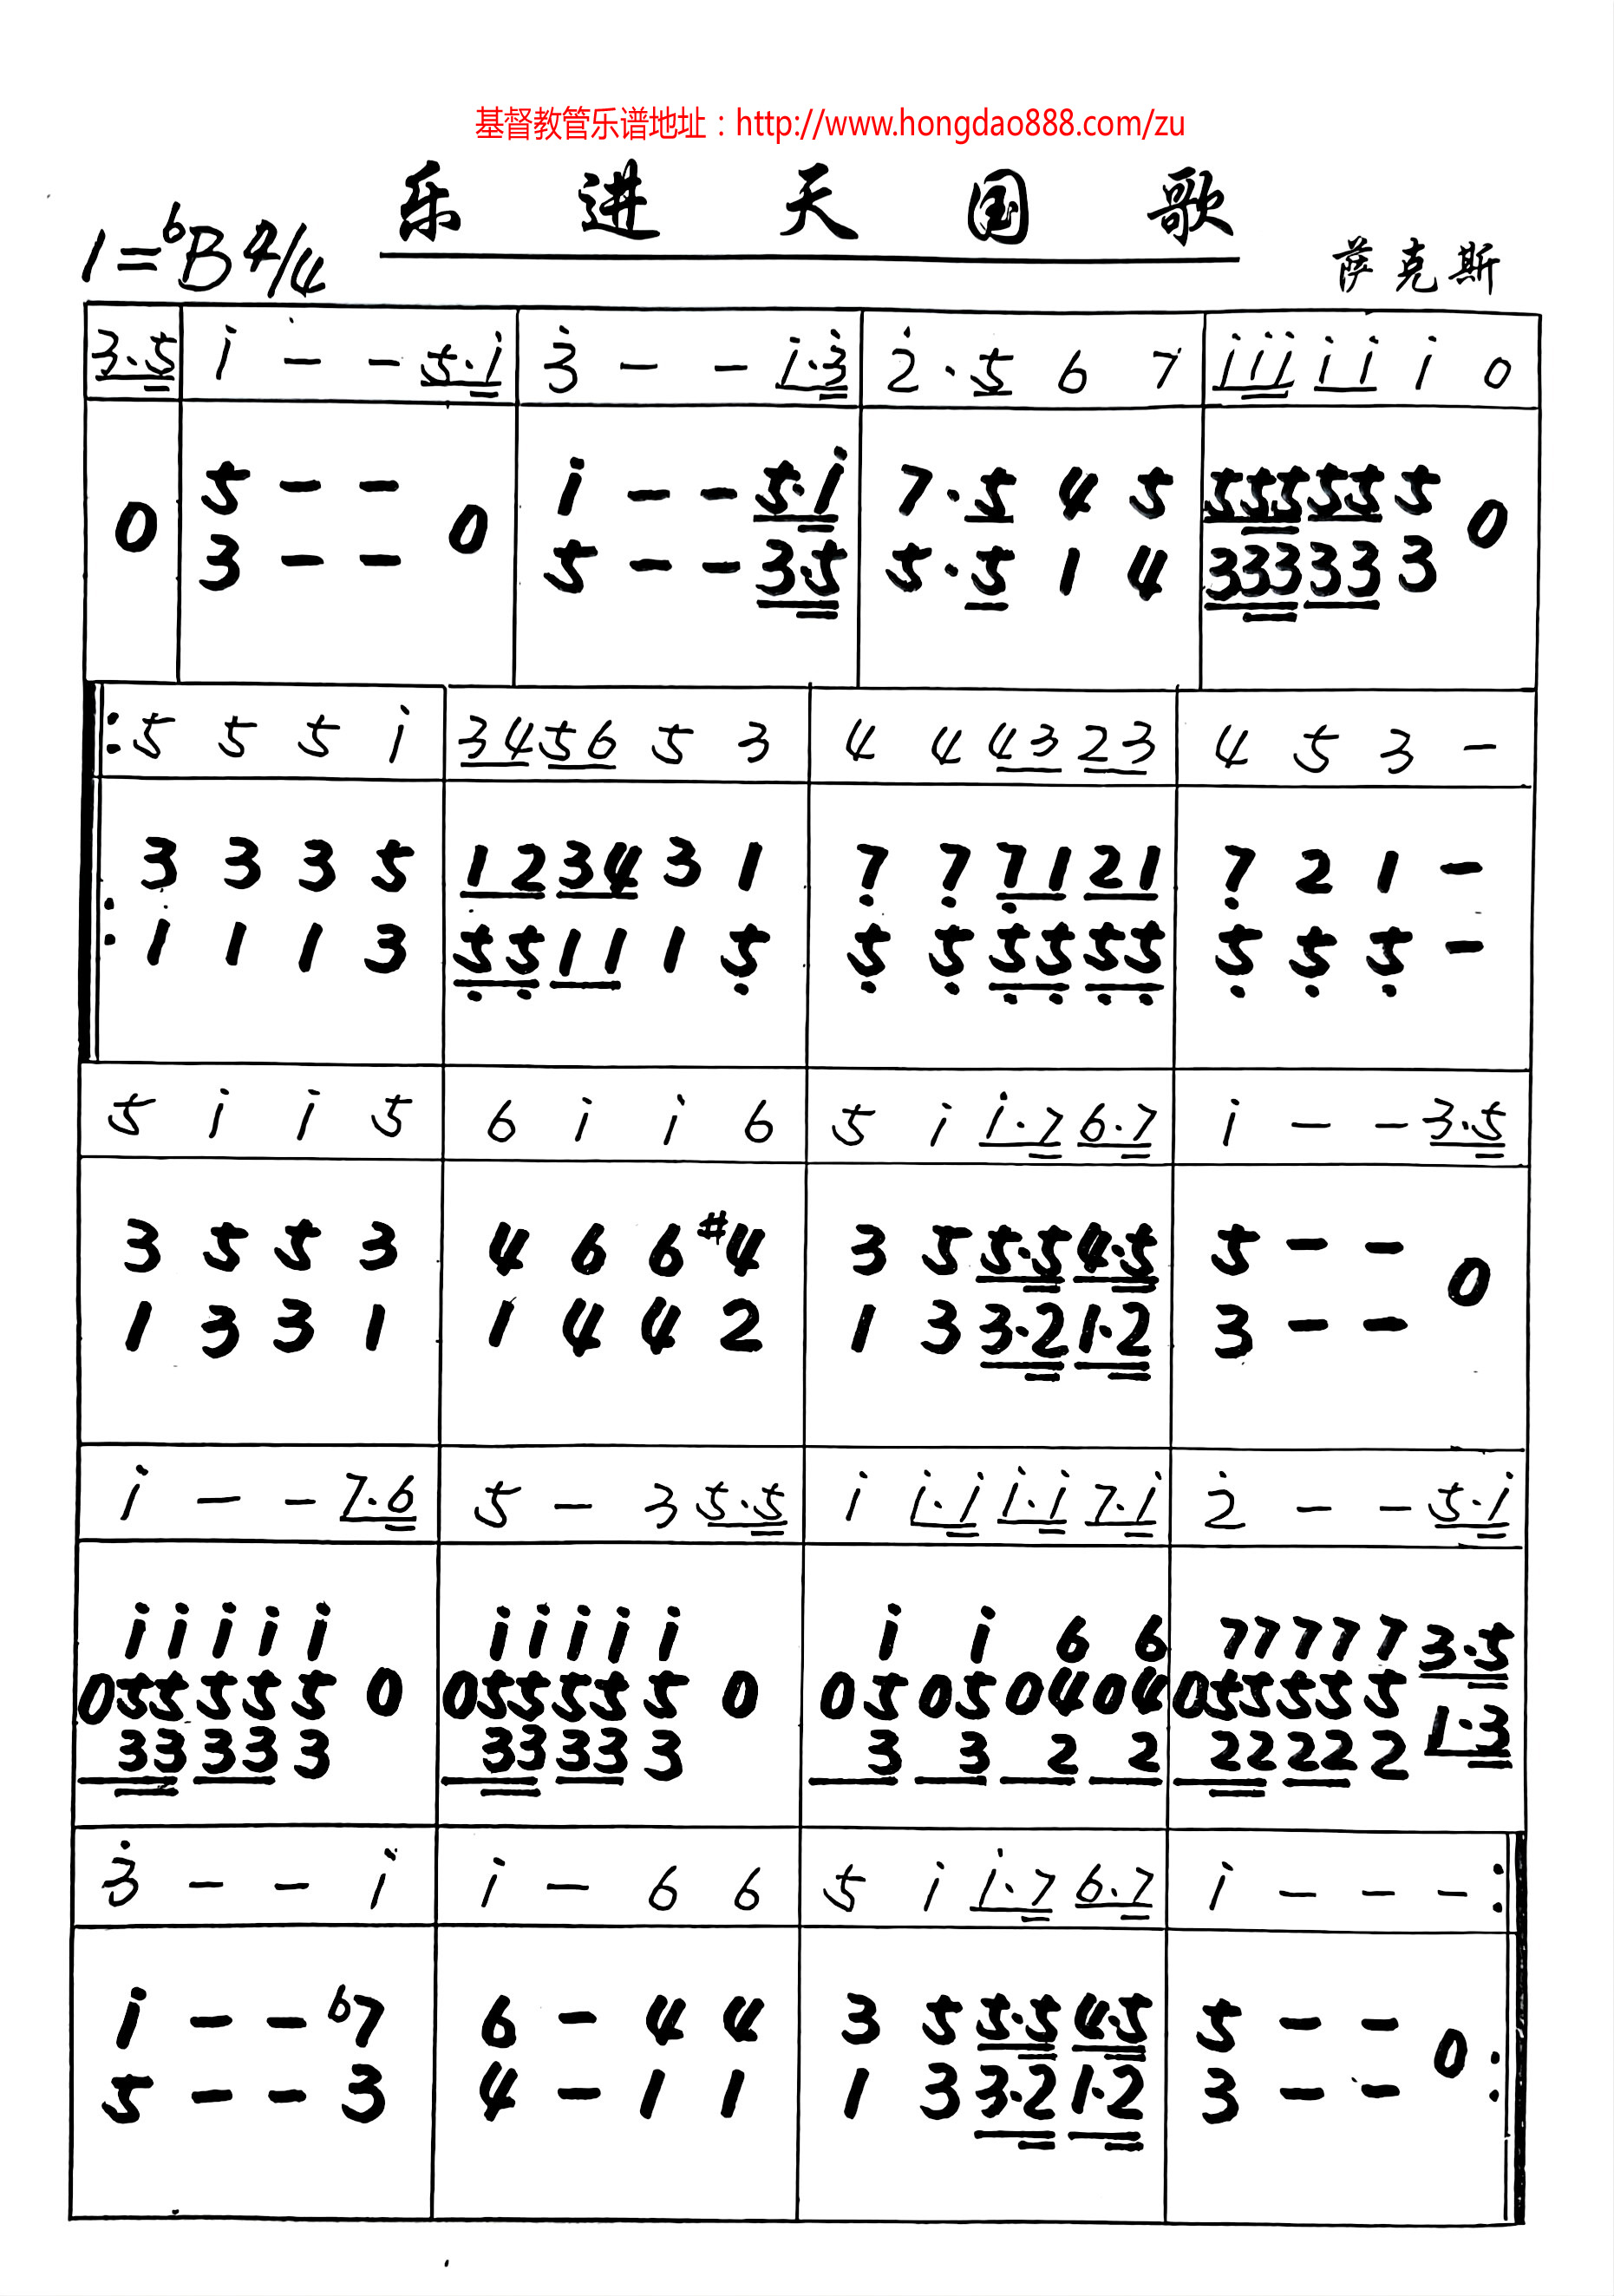 基督教管乐谱地址：http://www.hongdao888.com/zu
乐进天国歌
1=♭B 4/4
萨克斯
3·5 | i - - 5·i | 3̇ - - i·3̇ | 2̇·5 6 7 | iii ii i 0
0 | 5 - - 0 | i - - 5·i | 7·5 4 5 | 555 55 5 0
3 - - | 5 - - 3·5 | 5·5 1 4 | 333 33 3
‖: 5 5 5 i | 34 56 5 3 | 4 4 43 23 | 4 5 3 -
3 3 3 5 | 12 34 3 1 | 7̣ 7̣ 7̣1 21 | 7̣ 2 1 -
: 1 1 1 3 | 5̣5̣ 11 1 5̣ | 5̣ 5̣ 5̣5̣ 5̣5̣ | 5̣ 5̣ 5̣ -
5 i i 5 | 6 i i 6 | 5 i i·7 6·7 | i - - 3·5
3 5 5 3 | 4 6 6 #4 | 3 5 5·5 4·5 | 5 - - 0
1 3 3 1 | 1 4 4 2 | 1 3 3·2 1·2 | 3 - -
i - - 7·6 | 5 - 3 5·5 | i i·i i·i 7·i | 2̇ - - 5·i
i i i i i | i i i i i | i i 6 6 | 7 7 7 7 7 3·5
055 55 5 0 | 055 55 5 0 | 05 05 04 04 | 055 55 5
33 33 3 | 33 33 3 | 3 3 2 2 | 22 22 2 1·3
3̇ - - i | i - 6 6 | 5 i i·7 6·7 | i - - - :‖
i - - ♭7 | 6 - 4 4 | 3 5 5·5 4·5 | 5 - - 0 :
5 - - 3 | 4 - 1 1 | 1 3 3·2 1·2 | 3 - -